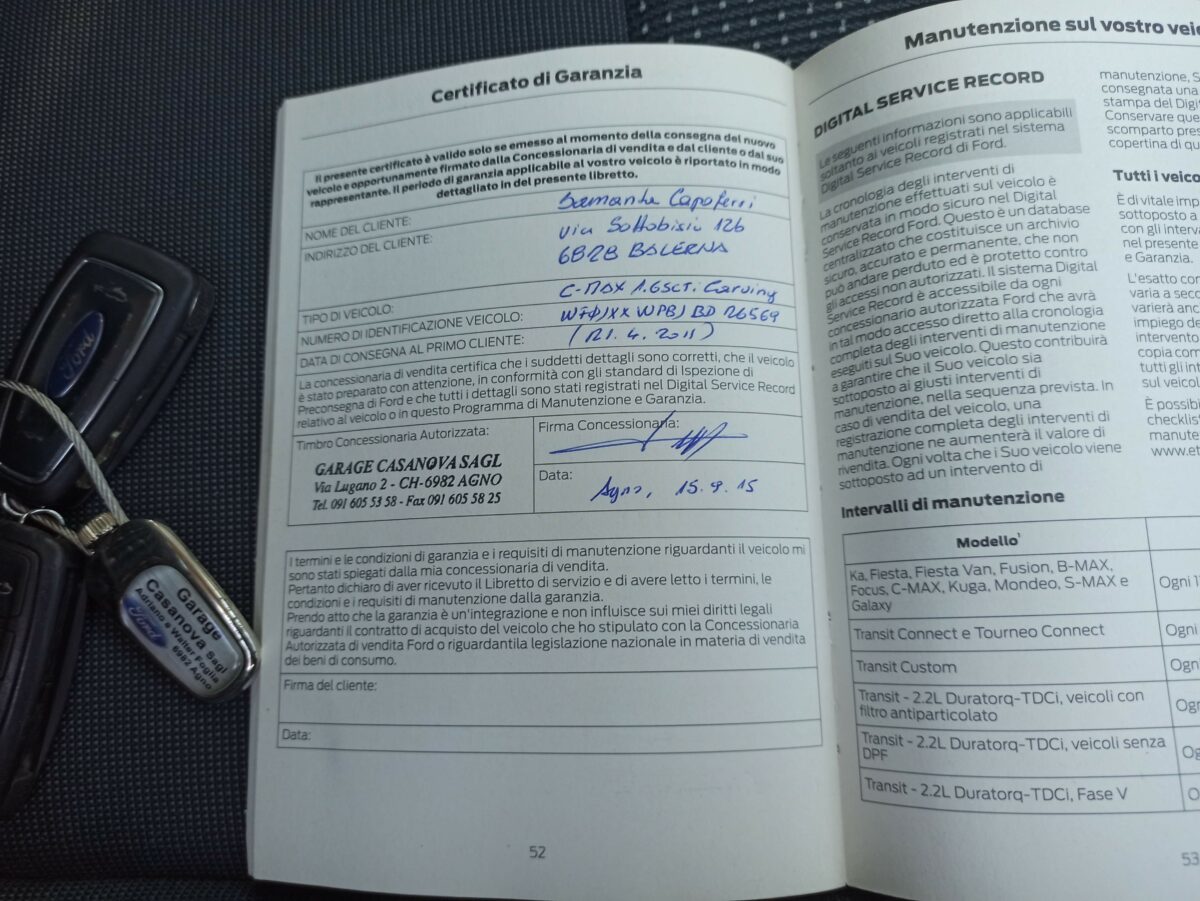 Certificato di Garanzia
Il presente certificato è valido solo se emesso al momento della consegna del nuovo
veicolo e opportunamente firmato dalla Concessionaria di vendita e dal cliente o dal suo
rappresentante. Il periodo di garanzia applicabile al vostro veicolo è riportato in modo
dettagliato in del presente libretto.
NOME DEL CLIENTE: Samantha Capoferri
INDIRIZZO DEL CLIENTE: via Sottobisio 12b
6828 BALERNA
TIPO DI VEICOLO: C-MAX 1.6SCTi Carving
NUMERO DI IDENTIFICAZIONE VEICOLO:
DATA DI CONSEGNA AL PRIMO CLIENTE: (21.4.2011)
La concessionaria di vendita certifica che i suddetti dettagli sono corretti, che il veicolo
è stato preparato con attenzione, in conformità con gli standard di Ispezione di
Preconsegna di Ford e che tutti i dettagli sono stati registrati nel Digital Service Record
relativo al veicolo o in questo Programma di Manutenzione e Garanzia.
Timbro Concessionaria Autorizzata:
GARAGE CASANOVA SAGL
Via Lugano 2 - CH-6982 AGNO
Tel. 091 605 53 58 - Fax 091 605 58 25
Firma Concessionaria:
Data:
Agno, 15.9.15
I termini e le condizioni di garanzia e i requisiti di manutenzione riguardanti il veicolo mi
sono stati spiegati dalla mia concessionaria di vendita.
Pertanto dichiaro di aver ricevuto il Libretto di servizio e di avere letto i termini, le
condizioni e i requisiti di manutenzione dalla garanzia.
Prendo atto che la garanzia è un'integrazione e non influisce sui miei diritti legali
riguardanti il contratto di acquisto del veicolo che ho stipulato con la Concessionaria
Autorizzata di vendita Ford o riguardantila legislazione nazionale in materia di vendita
dei beni di consumo.
Firma del cliente:
Data:
52
Manutenzione sul vostro
DIGITAL SERVICE RECORD
Le seguenti informazioni sono applicabili
soltanto ai veicoli registrati nel sistema
Digital Service Record di Ford.
La cronologia degli interventi di
manutenzione effettuati sul veicolo è
conservata in modo sicuro nel Digital
Service Record Ford. Questo è un database
centralizzato che costituisce un archivio
sicuro, accurato e permanente, che non
può andare perduto ed è protetto contro
gli accessi non autorizzati. Il sistema Digital
Service Record è accessibile da ogni
concessionario autorizzata Ford che avrà
in tal modo accesso diretto alla cronologia
completa degli interventi di manutenzione
eseguiti sul Suo veicolo. Questo contribuirà
a garantire che il Suo veicolo sia
sottoposto ai giusti interventi di
manutenzione, nella sequenza prevista. In
caso di vendita del veicolo, una
registrazione completa degli interventi di
manutenzione ne aumenterà il valore di
rivendita. Ogni volta che i Suo veicolo viene
sottoposto ad un intervento di
manutenzione, S
consegnata una
stampa del Digi
Conservare que
scomparto pres
copertina di qu
Tutti i veico
È di vitale imp
sottoposto a
con gli interva
nel presente
e Garanzia.
L'esatto con
varia a seco
varierà anc
impiego de
intervento
copia com
tutti gli int
sul veicolo
È possibi
checklist
manute
www.et
Intervalli di manutenzione
Modello¹
Ka, Fiesta, Fiesta Van, Fusion, B-MAX,
Focus, C-MAX, Kuga, Mondeo, S-MAX e
Galaxy
Ogni 1
Transit Connect e Tourneo Connect
Ogni
Transit Custom
Ogn
Transit - 2.2L Duratorq-TDCi, veicoli con
filtro antiparticolato
Ogr
Transit - 2.2L Duratorq-TDCi, veicoli senza
DPF
Transit - 2.2L Duratorq-TDCi, Fase V
53
Ford
Garage
Casanova Sagl
Adriano e Walter Foglia
6982 Agno
Ford